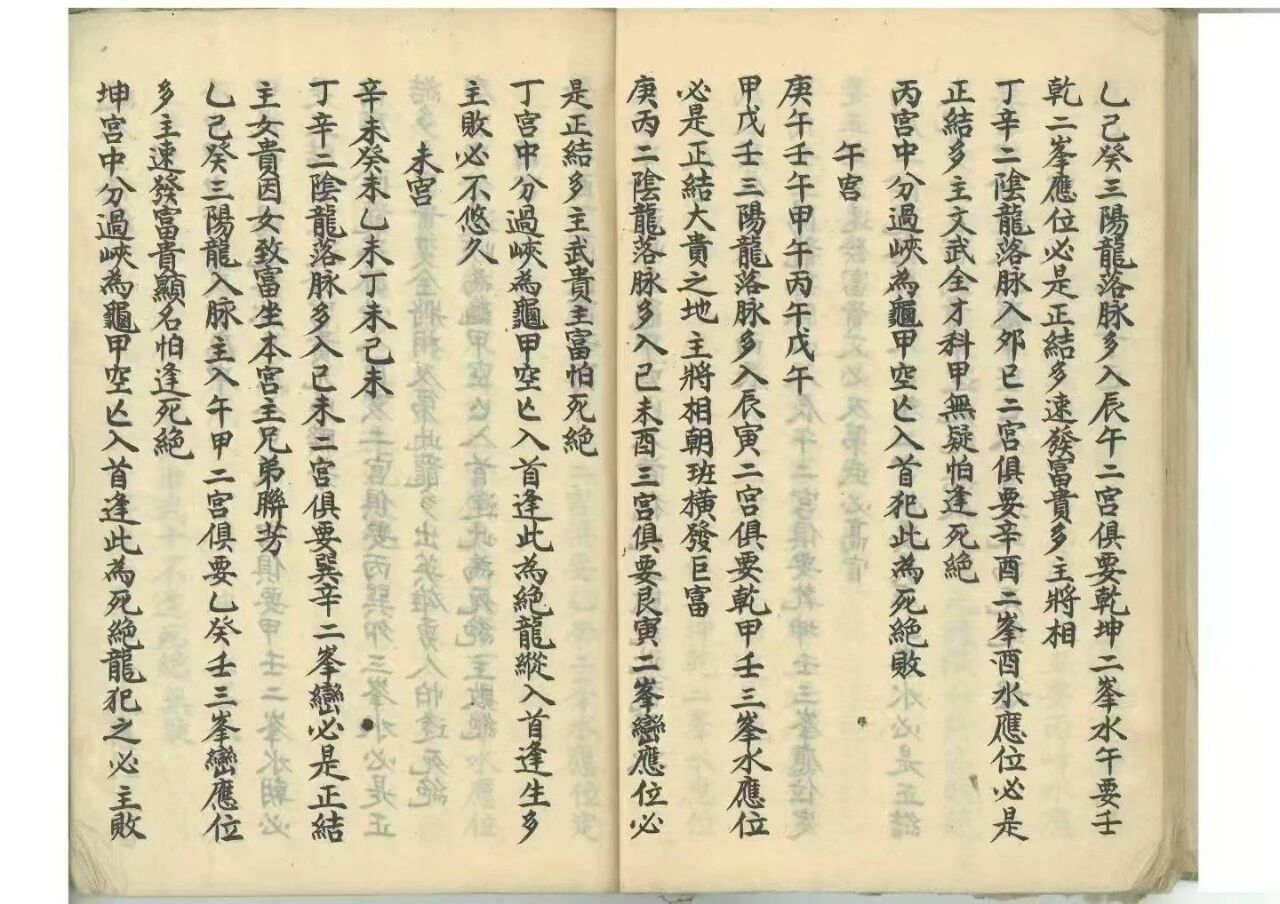 乙己癸三陽龍落脉多入辰午二宫俱要乾坤二峯水午要壬
乾二峯應位必是正結多速發富貴多主將相
丁辛二陰龍落脉入夘巳二宫俱要辛酉二峯酉水應位必是
正結多主文武全才科甲無疑怕逢死絶
丙宫中分過峽為龜甲空亡入首犯此為死絶敗
午宫
庚午壬午甲午丙午戊午
甲戊壬三陽龍落脉多入辰寅二宫俱要乾甲壬三峯水應位
必是正結大貴之地主將相朝班橫發巨富
庚丙二陰龍落脉多入己未酉三宫俱要艮寅二峯巒應位必
是正結多主武貴主富怕死絶
丁宫中分過峽為龜甲空亡入首逢此為絶龍縱入首逢生多
主敗必不悠久
未宫
辛未癸未乙未丁未己未
丁辛二陰龍落脉多入已未二宫俱要巽辛二峯巒必是正結
主女貴因女致富坐本宫主兄弟聯芳
乙己癸三陽龍入脉主入午甲二宫俱要乙癸壬三峯巒應位
多主速發富貴顯名怕逢死絶
坤宫中分過峽為龜甲空亡入首逢此為死絶龍犯之必主敗